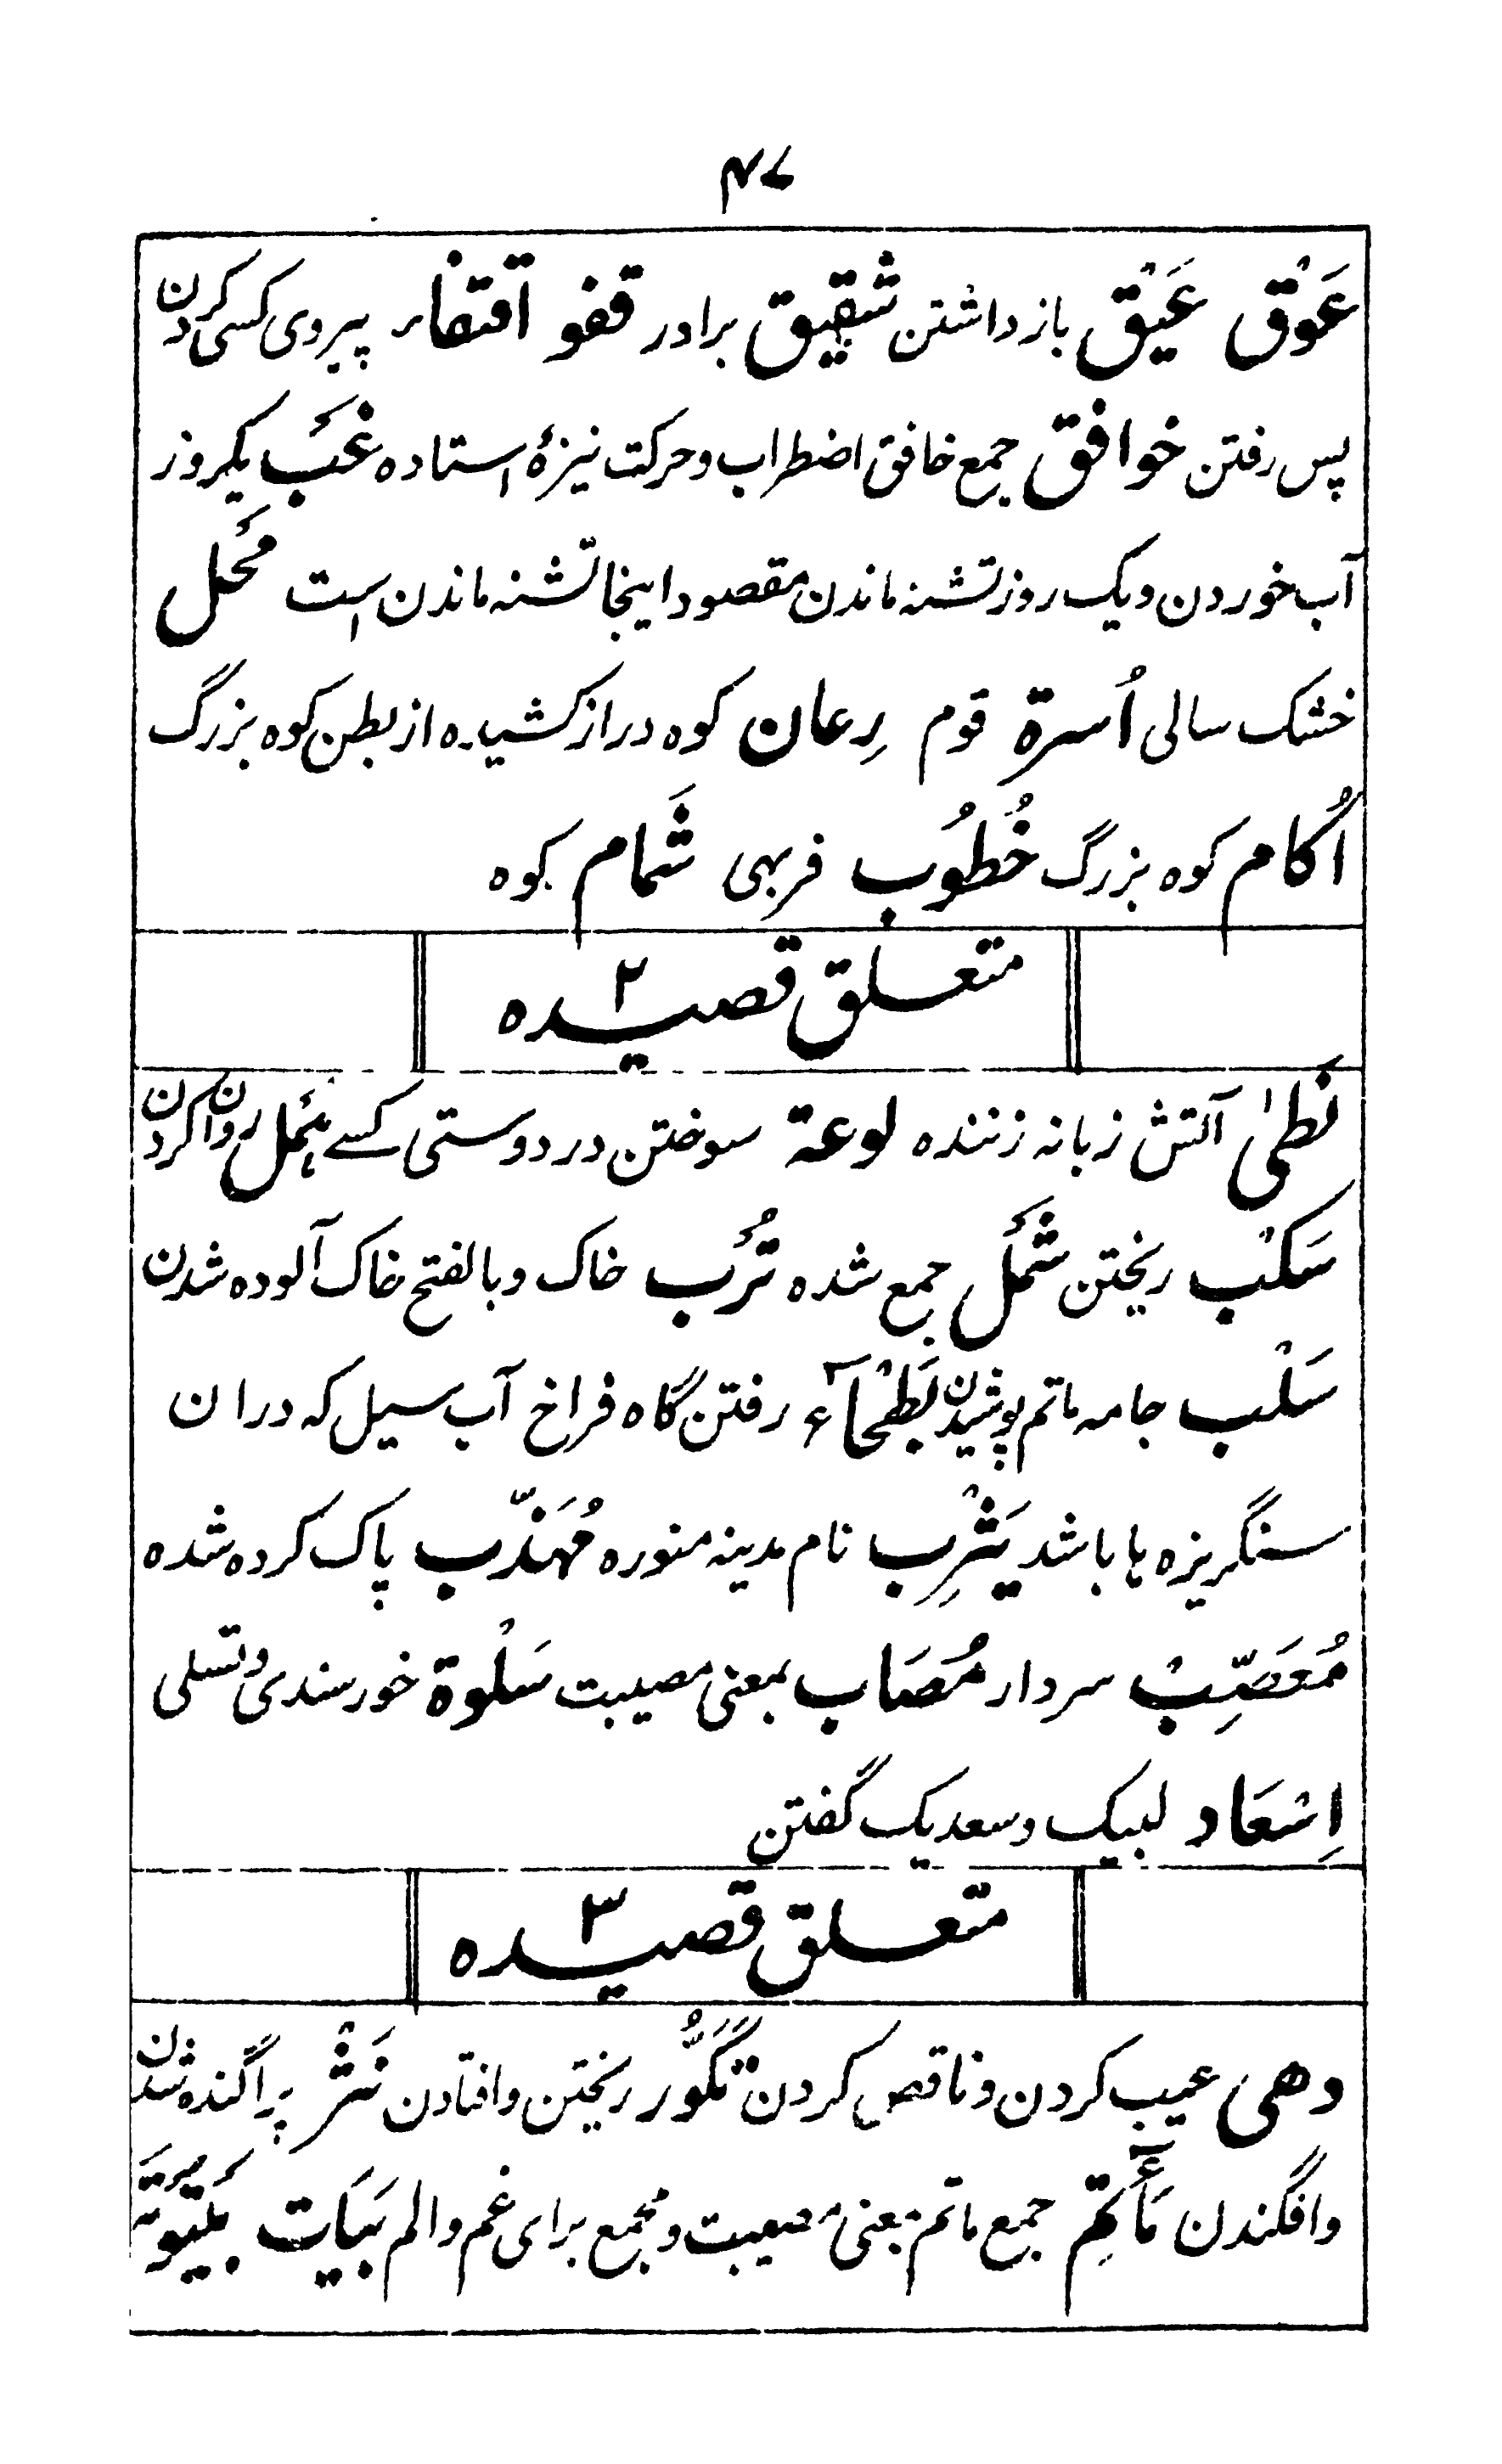 ۴۷
عَوْق عَیْق بازداشتن شقیق برادر قفو اقتفاء پیروی کسی کردن
پس رفتن خوافق جمع خافق اضطراب و حرکت نیزهٔ استاده غَب یکروز
آب خوردن و یک روز تشنه ماندن مقصود اینجا تشنه ماندن است مَحل
خشک سالی اُسرة قوم رِعان کوه دراز کشیده از بطن کوه بزرگ
اُکام کوه بزرگ خُطُوب فربهی شَمام کوه
متعلق قصیده ۲
نَطیٰ آتش زبانه زننده لوعة سوختن در دوستی کسے هَمل روان کردن
سَکْب ریختن شَمل جمع شده تُرَب خاک و بالفتح خاک آلوده شدن
سَلْب جامه ماتم پوشیدن بَطْحَآء رفتن گاه فراخ آب سیل که دران
سنگریزه ها باشد یَثْرِب نام مدینه منوره مُهَذَّب پاک کرده شده
مُعَصِّبْ سردار مُصَاب بمعنی مصیبت سَلْوة خورسندی و تسلی
اِسْعَاد لبیک و سعدیک گفتن
متعلق قصیده ۳
دهی عیب کردن و ناقص کردن تَکَوُّر ریختن و افتادن نَثْر پراگنده شدن
وافگندن مَآتِم جمع ماتم بمعنی مصیبت و مجمع برای غم و الم بَیَات بَیتوتَه